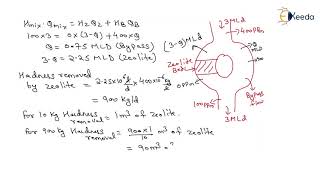 Ekeeda
Hmix Qmix = HzQz + HBQB
100×3 = 0×(3-Q) + 400×Q
Q = 0.75 MLD (Bypass)
3-Q = 2.25 MLD (Zeolite)
Hardness removed
by zeolite = 2.25×10⁶ l/d × 400×10⁻⁶ kg/l
= 900 kg/d
For 10 kg Hardness removed = 1m³ of zeolite.
For 900 kg Hardness removal = 900×1/10 m³ of zeolite
= 90m³ of
3MLd
400PPm
(3-Q) MLd
Q MLD
Zeolite
Bed
Bypass
100PPm
3MLD